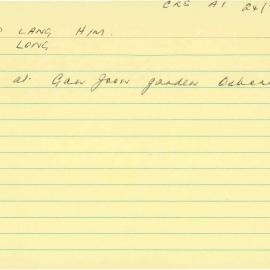 CRS A1 24/
LANG HIM.
LONG
at Gaw Joon garden Osbor